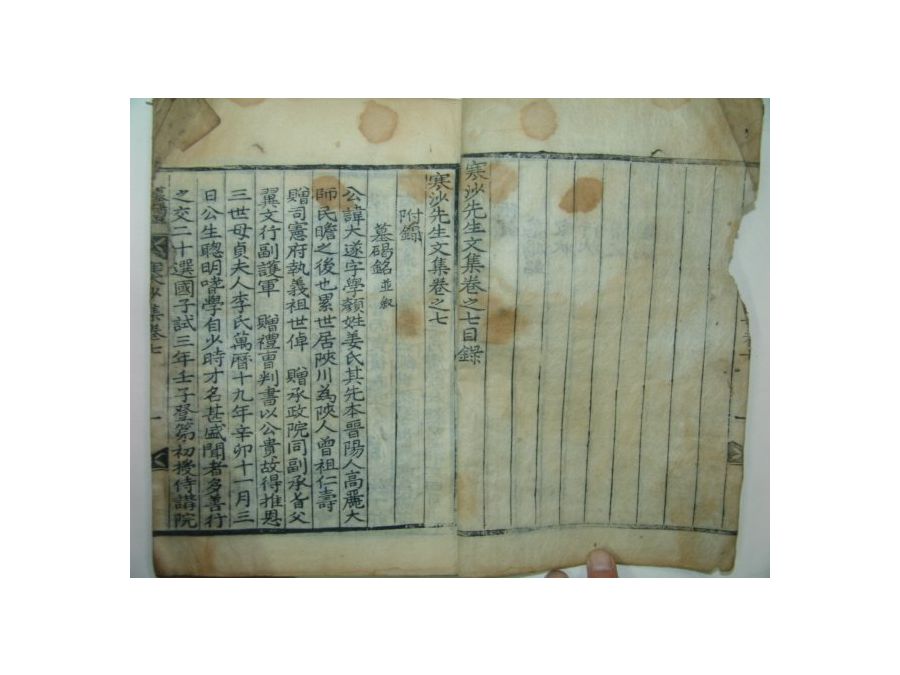 寒沙先生文集卷之七目錄
寒沙先生文集卷之七
附錄
墓碣銘 並叙
公諱大遂字學顔姓姜氏其先本晉陽人高麗大
師民瞻之後也累世居陜川為陜人曾祖仁壽
贈司憲府執義祖世倬 贈承政院同副承旨父
翼文行副護軍 贈禮曹判書以公貴故得推恩
三世母貞夫人李氏萬曆十九年辛卯十一月三
日公生聰明嗜學自少時才名甚盛聞者多善行
之交二十選國子試三年壬子登第初授侍講院
寒沙集卷七
一